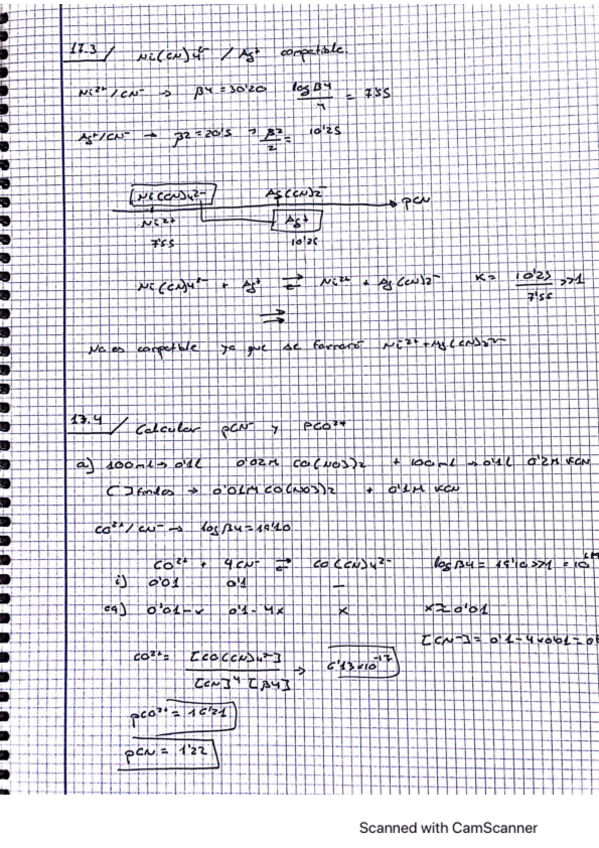 17.3/ Ni(CN)4²⁻ / Ag⁺ compatible.
Ni²⁺/CN⁻ → β4 = 30'20 logβ4/4 = 7'55
Ag⁺/CN⁻ → β2 = 20'5 → β2/2 = 10'25
Ni(CN)4²⁻ Ag(CN)2⁻
→ pCN
Ni²⁺ Ag⁺
7'55 10'25
Ni(CN)4²⁻ + Ag⁺ ⇄ Ni²⁺ + Ag(CN)2⁻ K = 10'25/7'55 >>1
⇉
No es compatible ya que se formará Ni²⁺ + Ag(CN)2⁻
17.4/ Calcular pCN⁻ y pCO²⁺
a) 100ml → 0'1l 0'02M CO(NO3)2 + 100ml → 0'1l 0'2M KCN
[ ] finales → 0'01M CO(NO3)2 + 0'1M KCN
CO²⁺/CN⁻ → logβ4 = 19'10
CO²⁺ + 4CN⁻ ⇄ CO(CN)4²⁻ logβ4 = 19'10 >>1 = 10
i) 0'01 0'1 —
eq) 0'01-x 0'1-4x x x≈0'01
[CN⁻] = 0'1-4x0'01 = 0
CO²⁺ = [CO(CN)4²⁻]/[CN]⁴[β4] → 6'13x10⁻¹⁷
pCO²⁺ = 16'21
pCN = 1'22
Scanned with CamScanner